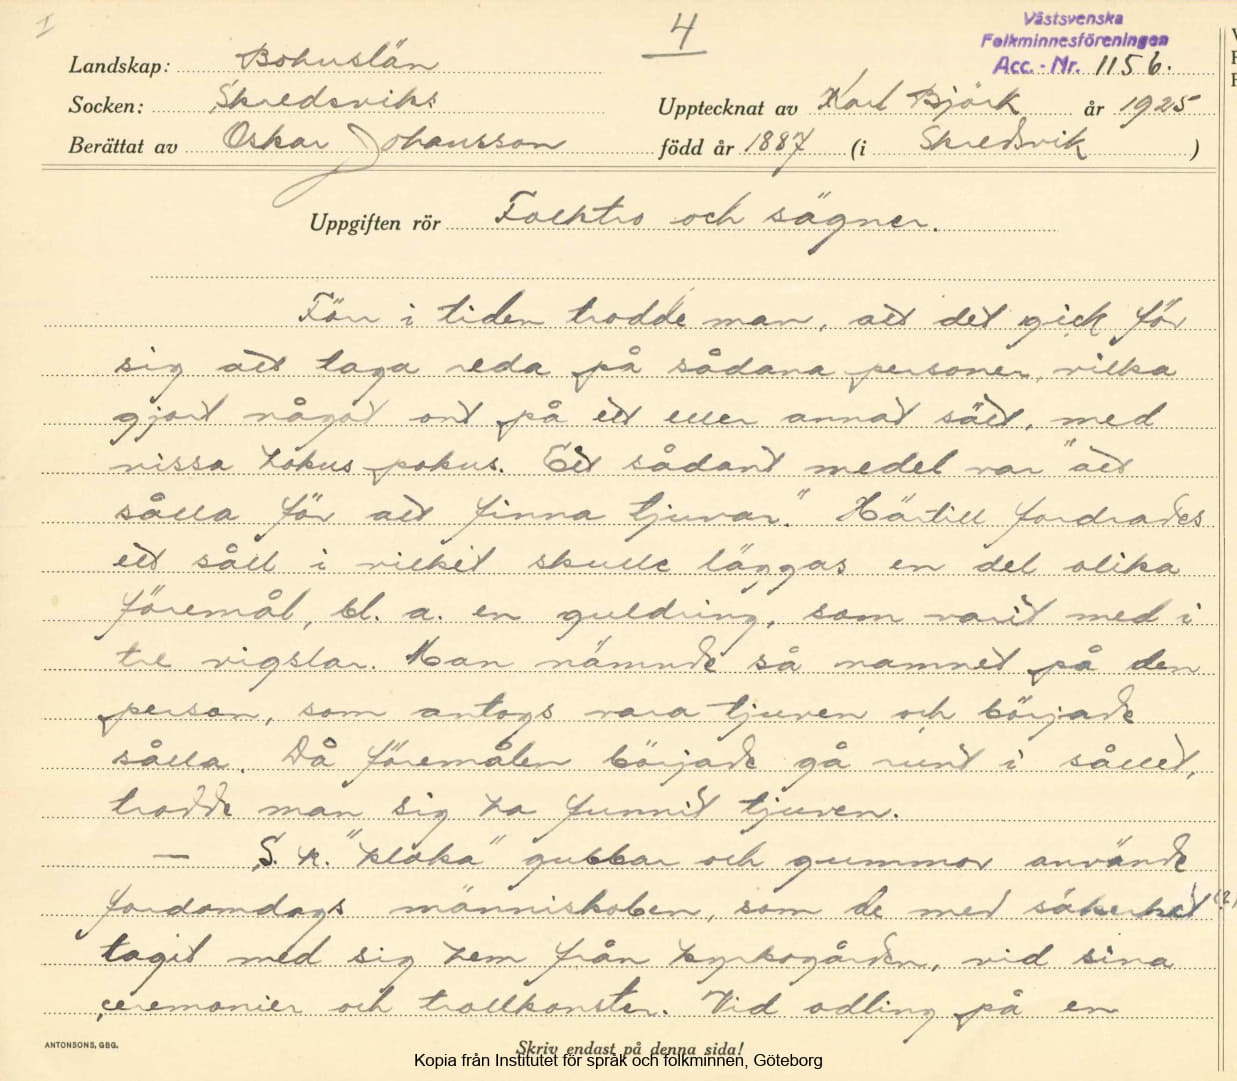 I
4
Västsvenska
Folkminnesföreningen
Acc. - Nr. 1156.
Landskap: Bohuslän
Socken: Skredsviks
Upptecknat av Karl Björk år 1925
Berättat av Oskar Johansson
född år 1887 (i Skredsvik )
Uppgiften rör Folktro och sägner.
Förr i tiden trodde man, att det gick för
sig att taga reda på sådana personer, vilka
gjort något ont på ett eller annat sätt, med
vissa hokus pokus. Ett sådant medel var "att
sålla för att finna tjuvar." Härtill fordrades
ett såll i vilket skulle läggas en del olika
föremål, bl. a. en guldring, som varit med i
tre vigslar. Man nämnde så namnet på den
person, som antogs vara tjuven och började
sålla. Då föremålen började gå runt i sållet,
trodde man sig ha funnit tjuven.
— S. k. "kloka" gubbar och gummor använde
fordomdags människoben, som de med säkerhet (?)
tagit med sig hem från kyrkogården, vid sina
ceremonier och trollkonster. Vid odling på en
ANTONSONS, GBG.
Skriv endast på denna sida!
Kopia från Institutet för språk och folkminnen, Göteborg